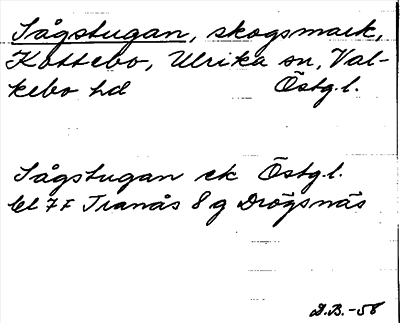 Sågstugan, skogsmark,
Kottebo, Ulrika sn, Val-
kebo hd Östg.l.
Sågstugan ek Östg.l.
bl 7F Tranås 8 g Drögsnäs
D.B.-58